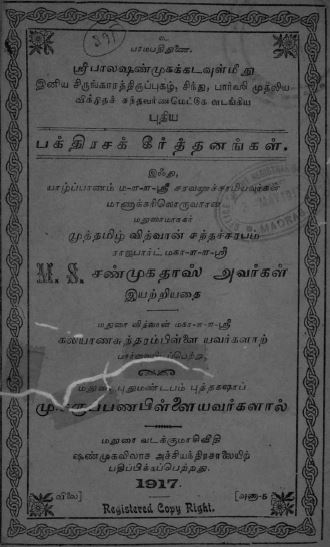 உ
பரமபதிதுணை.
ஸ்ரீபாலஷண்முகக்கடவுள்மீது
இனிய சிருங்காரத்திருப்புகழ், சிந்து, பார்ஸி முதலிய
விசித்திரச் சந்தவர்ணமெட்டுக ளடங்கிய
புதிய
பக்திரசக் கீர்த்தனங்கள்.
இஃது,
யாழ்ப்பாணம் ம-ள-ள-ஸ்ரீ சரவணச்சாமியவர்கள்
மாணாக்கரிலொருவரான
மதுரைமாநகர்
முத்தமிழ் வித்வான் சந்தச்சரபம்
ராஜபார்ட் மகா-ள-ள-ஸ்ரீ
M. S. சண்முகதாஸ் அவர்கள்
இயற்றியதை
மதுரை வித்வான் மகா-ள-ள-ஸ்ரீ
கலயாணசுந்தரம்பிள்ளை யவர்களாற்
பார்வையிடப்பெற்று,
மதுரை, புதுமண்டபம் புத்தகஷாப்
மு. கருப்பணபிள்ளையவர்களால்
மதுரை வடக்குமாசிவீதி
ஷண்முகவிலாச அச்சியந்திரசாலையிற்
பதிப்பிக்கப்பெற்றது.
1917.
விலை] [அணா-
Registered Copy Right.